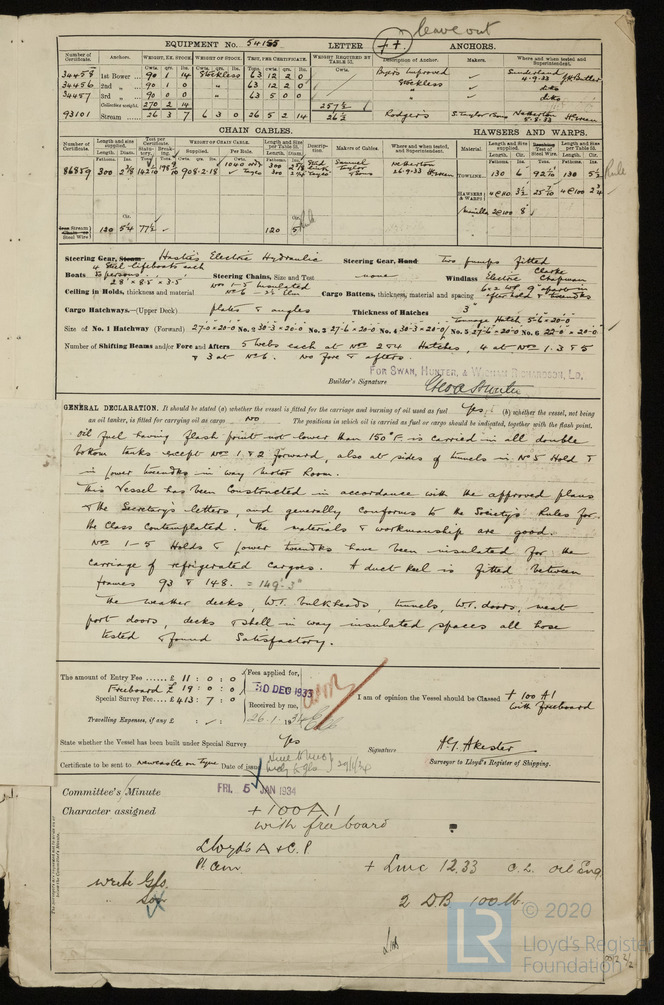 leave out
EQUIPMENT No. 54155 LETTER ++ ANCHORS.
Number of Certificate. Anchors. WEIGHT, EX. STOCK. WEIGHT OF STOCK. TEST, PER CERTIFICATE. WEIGHT REQUIRED BY TABLE 31. Description of Anchor. Makers. Where and when tested and Superintendent.
Cwts. qrs. lbs. Cwts. qrs. lbs. Tons. cwts. qrs. lbs. Cwts.
34458 1st Bower 90 1 14 Stockless 63 12 2 0 Byers Improved Sunderland
34456 2nd " 90 1 0 " 63 12 2 0 Stockless 4-9-33
34457 3rd " 90 0 0 " 63 5 0 0 " ditto
Collective weight. 270 2 14 257½
93101 Stream 26 3 7 6 3 0 26 5 2 14 26½ Rodgers S. Taylor & Sons Netherton 5-8-33
CHAIN CABLES. HAWSERS AND WARPS.
Number of Certificate. Length and size supplied. Test per Certificate. WEIGHT OF CHAIN CABLE. Length and size per Table 31. Description. Makers of Cables. Where and when tested, and Superintendent. Material. Length and size supplied. Breaking Test of Steel Wire. Length and size per Table 31.
86859 300 908-2-18 300 Stud Link Samuel Taylor & Sons Netherton 26-9-33 TOWLINE 130 6 130 5½ Rule
HAWSERS & WARPS 4@110 3½ 4@100 2¾
Manilla 2@100 8
Stream Steel Wire 120 5¼ 77½ 120 5¼ Rule
Steering Gear, Steam Hastie's Electric Hydraulic Steering Gear, Hand Two pumps fitted
Boats 4 Steel lifeboats each 28' × 8.5 × 3.5 Steering Chains, Size and Test none Windlass Electric Clarke Chapman
Ceiling in Holds, thickness and material Nos 1-5 Insulated No 6 - 2½ Elm Cargo Battens, thickness, material and spacing 6×2 WP 9" apart in after hold & tweendks
Cargo Hatchways.—(Upper Deck) plates & angles Thickness of Hatches 3"
Tonnage Hatch 5-6 × 20-0
Size of No. 1 Hatchway (Forward) 27-0 × 20-0 No. 2 30-3 × 20-0 No. 3 27-6 × 20-0 No. 4 30-3 × 20-0 No. 5 27-6 × 20-0 No. 6 22-0 × 20-0
Number of Shifting Beams and/or Fore and Afters 5 webs each at Nos 2 & 4 Hatches, 4 at Nos 1. 3 & 5
& 3 at No 6. No fore & afters.
FOR SWAN, HUNTER, & WIGHAM RICHARDSON, LD.
Builder's Signature
GENERAL DECLARATION. It should be stated (a) whether the vessel is fitted for the carriage and burning of oil used as fuel Yes (b) whether the vessel, not being
an oil tanker, is fitted for carrying oil as cargo NO The positions in which oil is carried as fuel or cargo should be indicated, together with the flash point.
Oil fuel having flash point not lower than 150°F is carried in all double
bottom tanks except Nos 1 & 2 forward, also at sides of tunnels in No 5 Hold &
in lower tweendks in way Motor Room.
This Vessel has been constructed in accordance with the approved plans
& the Secretary's letters, and generally conforms to the Society's Rules for
the Class contemplated. The materials & workmanship are good.
Nos 1-5 Holds & lower tweendks have been insulated for the
carriage of refrigerated cargoes. A duct keel is fitted between
frames 93 & 148. = 149'-3"
The weather decks, W.T. bulkheads, tunnels, W.T. doors, meat
port doors, decks & shell in way insulated spaces all hose
tested & found satisfactory.
The amount of Entry Fee £ 11 : 0 : 0 Fees applied for,
Freeboard £ 19 : 0 : 0 30 DEC 1933
Special Survey Fee £ 413 : 7 : 0 Received by me, I am of opinion the Vessel should be Classed +100 A1 with Freeboard
Travelling Expenses, if any £ : : 26.1.1934
State whether the Vessel has been built under Special Survey Yes Signature
Surveyor to Lloyd's Register of Shipping.
Certificate to be sent to Newcastle on Tyne Date of issue
Committee's Minute FRI. 5 JAN 1934
Character assigned +100 A1
with freeboard
Lloyd's A & C.P
+ LMC 12.33 C.L. Oil Eng
Write Gls.
2 DB 100 lb.
LR © 2020
Lloyd's Register
Foundation